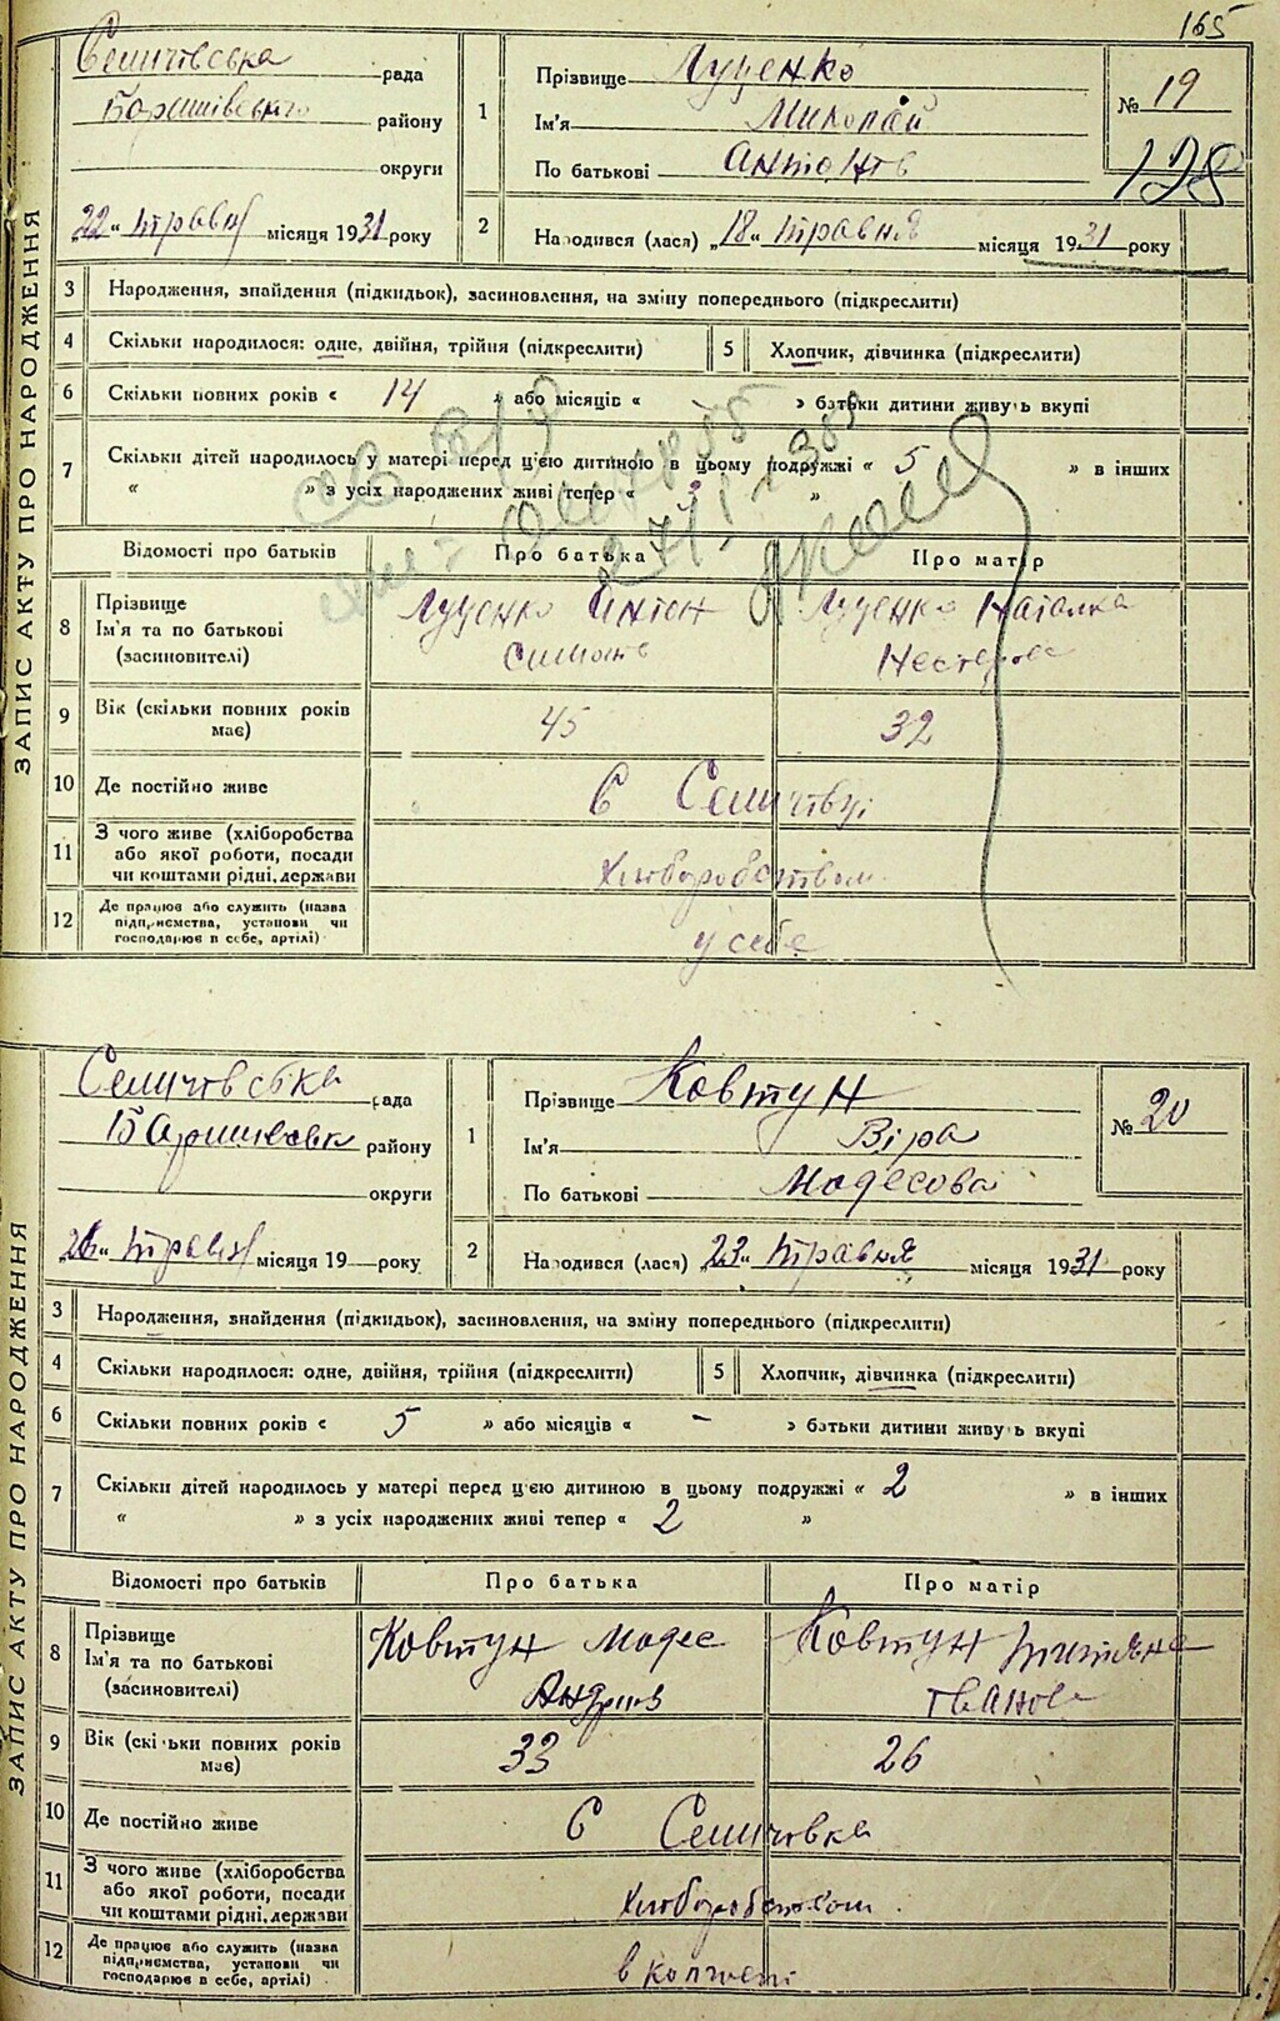 165
ЗАПИС АКТУ ПРО НАРОДЖЕННЯ
Селичівська рада
Баришівського району
округи
„22“ травня місяця 1931 року
1
Прізвище Луценко
Ім'я Миколай
По батькові Антонів
№ 19
128
2
Народився (лася) „18“ травня місяця 1931 року
3 Народження, знайдення (підкидьок), засиновлення, на зміну попереднього (підкреслити)
4 Скільки народилося: одне, двійня, трійня (підкреслити) 5 Хлопчик, дівчинка (підкреслити)
6 Скільки повних років « 14 » або місяців « » батьки дитини живуть вкупі
7 Скільки дітей народилось у матері перед цією дитиною в цьому подружжі « 5 » в інших
« » з усіх народжених живі тепер « 3 »
Відомості про батьків Про батька Про матір
8 Прізвище Ім'я та по батькові (засиновителі)
Луценко Антон Луценко Наталка
Нестерова
9 Вік (скільки повних років має) 45 32
10 Де постійно живе С Селичівці
11 З чого живе (хліборобства або якої роботи, посади чи коштами рідні, держави Хліборобством
12 Де працює або служить (назва підприємства, установи чи господарює в себе, артілі) у себе
ЗАПИС АКТУ ПРО НАРОДЖЕННЯ
Селичівська рада
Баришівськ району
округи
„26“ травня місяця 19 року
1
Прізвище Ковтун
Ім'я Віра
По батькові Модесова
№ 20
2
Народився (лася) „23“ травня місяця 1931 року
3 Народження, знайдення (підкидьок), засиновлення, на зміну попереднього (підкреслити)
4 Скільки народилося: одне, двійня, трійня (підкреслити) 5 Хлопчик, дівчинка (підкреслити)
6 Скільки повних років « 5 » або місяців « - » батьки дитини живуть вкупі
7 Скільки дітей народилось у матері перед цією дитиною в цьому подружжі « 2 » в інших
« » з усіх народжених живі тепер « 2 »
Відомості про батьків Про батька Про матір
8 Прізвище Ім'я та по батькові (засиновителі)
Ковтун Модес Ковтун Титяна
Андріїв Іванова
9 Вік (скільки повних років має) 33 26
10 Де постійно живе С Селичівка
11 З чого живе (хліборобства або якої роботи, посади чи коштами рідні, держави Хліборобством
12 Де працює або служить (назва підприємства, установи чи господарює в себе, артілі)